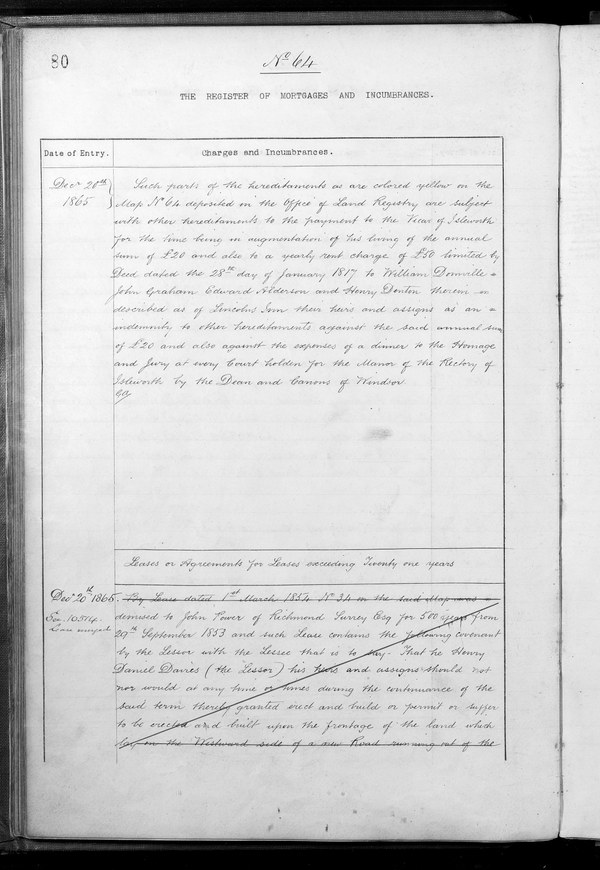 80
No 64
THE REGISTER OF MORTGAGES AND INCUMBRANCES.
Date of Entry.
Charges and Incumbrances.
Decr 20th 1865
Such parts of the hereditaments as are colored yellow on the
Map No 64 deposited in the Office of Land Registry are subject
with other hereditaments to the payment to the Vicar of Isleworth
for the time being in augmentation of his living of the annual
sum of £20 and also to a yearly rent charge of £50 limited by
Deed dated the 28th day of January 1817 to William Domville
John Graham Edward Alderson and Henry Denton therein
described as of Lincolns Inn their heirs and assigns as an
indemnity to other hereditaments against the said annual sum
of £20 and also against the expenses of a dinner to the Homage
and Jury at every Court holden for the Manor of the Rectory of
Isleworth by the Dean and Canons of Windsor
Leases or Agreements for Leases exceeding Twenty one years
Decr 20th 1865.
By Lease dated 1st March 1854 No 34 on the said Map was
demised to John Power of Richmond Surrey Esq for 500 years from
29th September 1853 and such Lease contains the following covenant
by the Lessor with the Lessee that is to say - That he Henry
Daniel Davies (the Lessor) his heirs and assigns should not
nor would at any time or times during the continuance of the
said term thereby granted erect and build or permit or suffer
to be erected and built upon the frontage of the land which
lay on the Westward side of a new Road running out of the